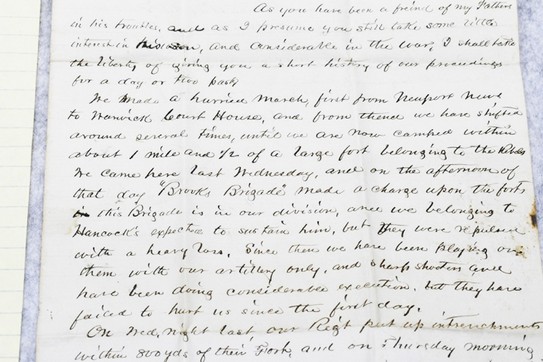 As you have been a friend of my Father
in his troubles, and as I presume you still take some little
interest in his son, and considerable in the war, I shall take
the liberty of giving you a short history of our proceedings
for a day or two past,
We made a hurried March, first from Newport News
to Warwick Court House, and from thence we have shifted
around several times, until we are now camped within
about 1 mile and 1/2 of a large fort belonging to the Rebels
We came here last Wednesday, and on the afternoon of
that day "Brooks Brigade" made a charge upon the forts
this Brigade is in our division, and we belonging to
Hancock's expected to sustain him, but they were repulsed
with a heavy loss. Since then we have been playing on
them with our artillery only, and sharp shooters and
have been doing considerable execution, but they have
failed to hurt us since the first day.
On Wed, night last our Regt put up intrenchments
within 800 yds of their Fort, and on Thursday morning